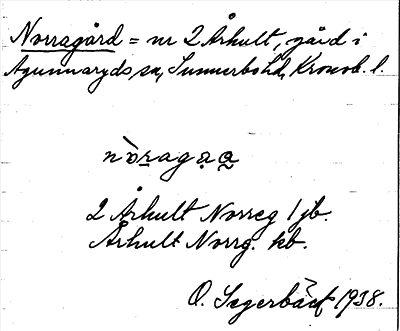 Norragård = nr 2 Århult, gård i
Agunnaryds sn, Sunnerbo hd, Kronob. l.
nòragạa
2 Århult Norreg 1 jb.
Århult Norrg. kb.
O. Segerbäck 1938.